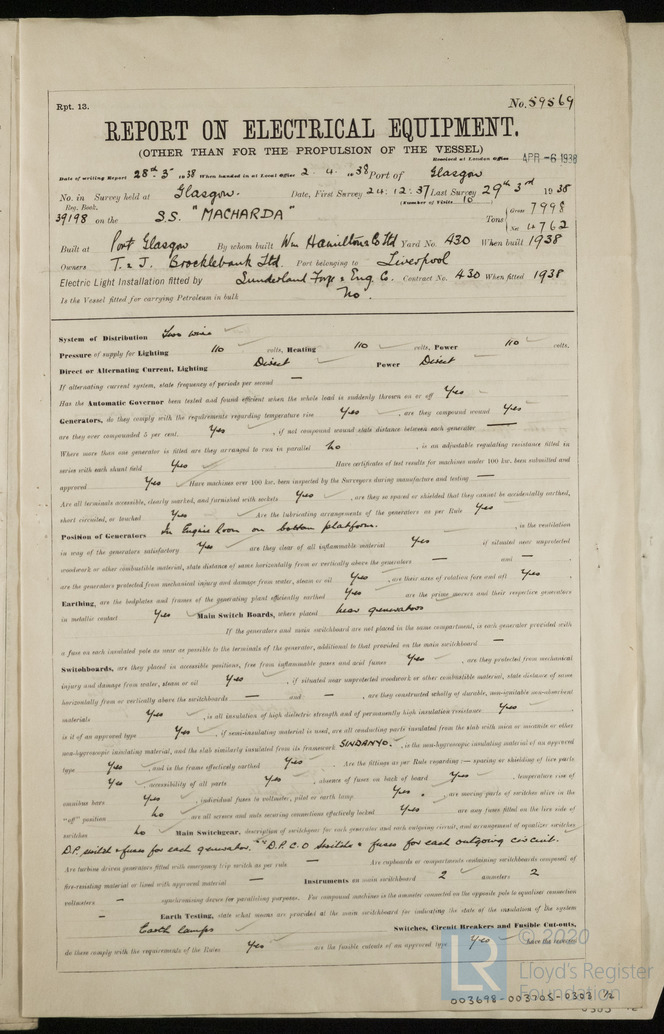 Rpt. 13.
No. 59569
REPORT ON ELECTRICAL EQUIPMENT.
(OTHER THAN FOR THE PROPULSION OF THE VESSEL)
Received at London Office APR -6 1938
Date of writing Report 28th 3rd 1938 When handed in at Local Office 2. 4. 1938 Port of Glasgow
No. in Survey held at Glasgow. Date, First Survey 24. 12. 37 Last Survey 29th 3rd 1938
Reg. Book. (Number of Visits 10)
39198 on the S.S. "MACHARDA" Tons { Gross 7998
Net 4762
Built at Port Glasgow By whom built Wm Hamilton & Co Ltd Yard No. 430 When built 1938
Owners T. & J. Brocklebank Ltd. Port belonging to Liverpool
Electric Light Installation fitted by Sunderland Forge & Eng. Co. Contract No. 430 When fitted 1938
Is the Vessel fitted for carrying Petroleum in bulk No.
System of Distribution Two wire
Pressure of supply for Lighting 110 volts, Heating 110 volts, Power 110 volts.
Direct or Alternating Current, Lighting Direct Power Direct
If alternating current system, state frequency of periods per second —
Has the Automatic Governor been tested and found efficient when the whole load is suddenly thrown on or off Yes
Generators, do they comply with the requirements regarding temperature rise Yes, are they compound wound Yes
are they over compounded 5 per cent. Yes, if not compound wound state distance between each generator —
Where more than one generator is fitted are they arranged to run in parallel No, is an adjustable regulating resistance fitted in
series with each shunt field Yes Have certificates of test results for machines under 100 kw. been submitted and
approved Yes Have machines over 100 kw. been inspected by the Surveyors during manufacture and testing —
Are all terminals accessible, clearly marked, and furnished with sockets Yes, are they so spaced or shielded that they cannot be accidentally earthed,
short circuited, or touched Yes Are the lubricating arrangements of the generators as per Rule Yes
Position of Generators In Engine Room on bottom platform., is the ventilation
in way of the generators satisfactory Yes are they clear of all inflammable material Yes if situated near unprotected
woodwork or other combustible material, state distance of same horizontally from or vertically above the generators — and —
are the generators protected from mechanical injury and damage from water, steam or oil Yes, are their axes of rotation fore and aft Yes.
Earthing, are the bedplates and frames of the generating plant efficiently earthed Yes are the prime movers and their respective generators
in metallic contact Yes Main Switch Boards, where placed Near generators
If the generators and main switchboard are not placed in the same compartment, is each generator provided with
a fuse on each insulated pole as near as possible to the terminals of the generator, additional to that provided on the main switchboard —
Switchboards, are they placed in accessible positions, free from inflammable gases and acid fumes Yes, are they protected from mechanical
injury and damage from water, steam or oil Yes, if situated near unprotected woodwork or other combustible material, state distance of same
horizontally from or vertically above the switchboards — and: —, are they constructed wholly of durable, non-ignitable non-absorbent
materials Yes, is all insulation of high dielectric strength and of permanently high insulation resistance Yes.
is it of an approved type Yes, if semi-insulating material is used, are all conducting parts insulated from the slab with mica or micanite or other
non-hygroscopic insulating material, and the slab similarly insulated from its framework SINDANYO., is the non-hygroscopic insulating material of an approved
type Yes, and is the frame effectively earthed Yes. Are the fittings as per Rule regarding:— spacing or shielding of live parts
Yes, accessibility of all parts Yes, absence of fuses on back of board Yes, temperature rise of
omnibus bars Yes, individual fuses to voltmeter, pilot or earth lamp Yes, are moving parts of switches alive in the
"off" position No are all screws and nuts securing connections effectively locked Yes are any fuses fitted on the live side of
switches No Main Switchgear, description of switchgear for each generator and each outgoing circuit, and arrangement of equaliser switches
D.P. switch & fuses for each generator. D.P.C.O switch & fuses for each outgoing circuit.
Are turbine driven generators fitted with emergency trip switch as per rule — Are cupboards or compartments containing switchboards composed of
fire-resisting material or lined with approved material — Instruments on main switchboard 2 ammeters 2
voltmeters — synchronising device for paralleling purposes. For compound machines is the ammeter connected on the opposite pole to equaliser connection
— Earth Testing, state what means are provided at the main switchboard for indicating the state of the insulation of the system
Earth lamps Switches, Circuit Breakers and Fusible Cut-outs,
do these comply with the requirements of the Rules Yes are the fusible cutouts of an approved type Yes have the reverse
LR
© 2020
Lloyd's Register
Foundation
003698-003705-0303 1/2